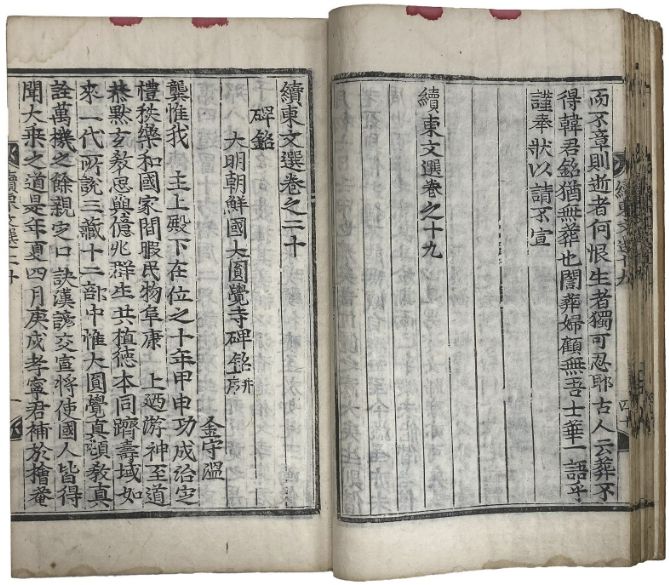 而不章則逝者何恨生者獨可忍耶古人云葬不
得韓君銘猶無葬也闇葬婦顧無吾士華一語乎
謹奉狀以請不宣
續東文選卷之十九
續東文選十九
續東文選卷之二十
碑銘
大明朝鮮國大圓覺寺碑銘并序
金守溫
龔惟我 主上殿下在位之十年甲申功成治定
禮秩樂和國家閒暇民物阜康 上迺游神至道
恭默玄教思與億兆群生共植德本同躋壽域如
來一代所說三藏十二部中惟大圓覺真頓教真
詮萬機之餘親定口訣漢諺交宣將使國人皆得
聞大乘之道是年夏四月庚戌孝寧君補於檜菴
續東文選二十